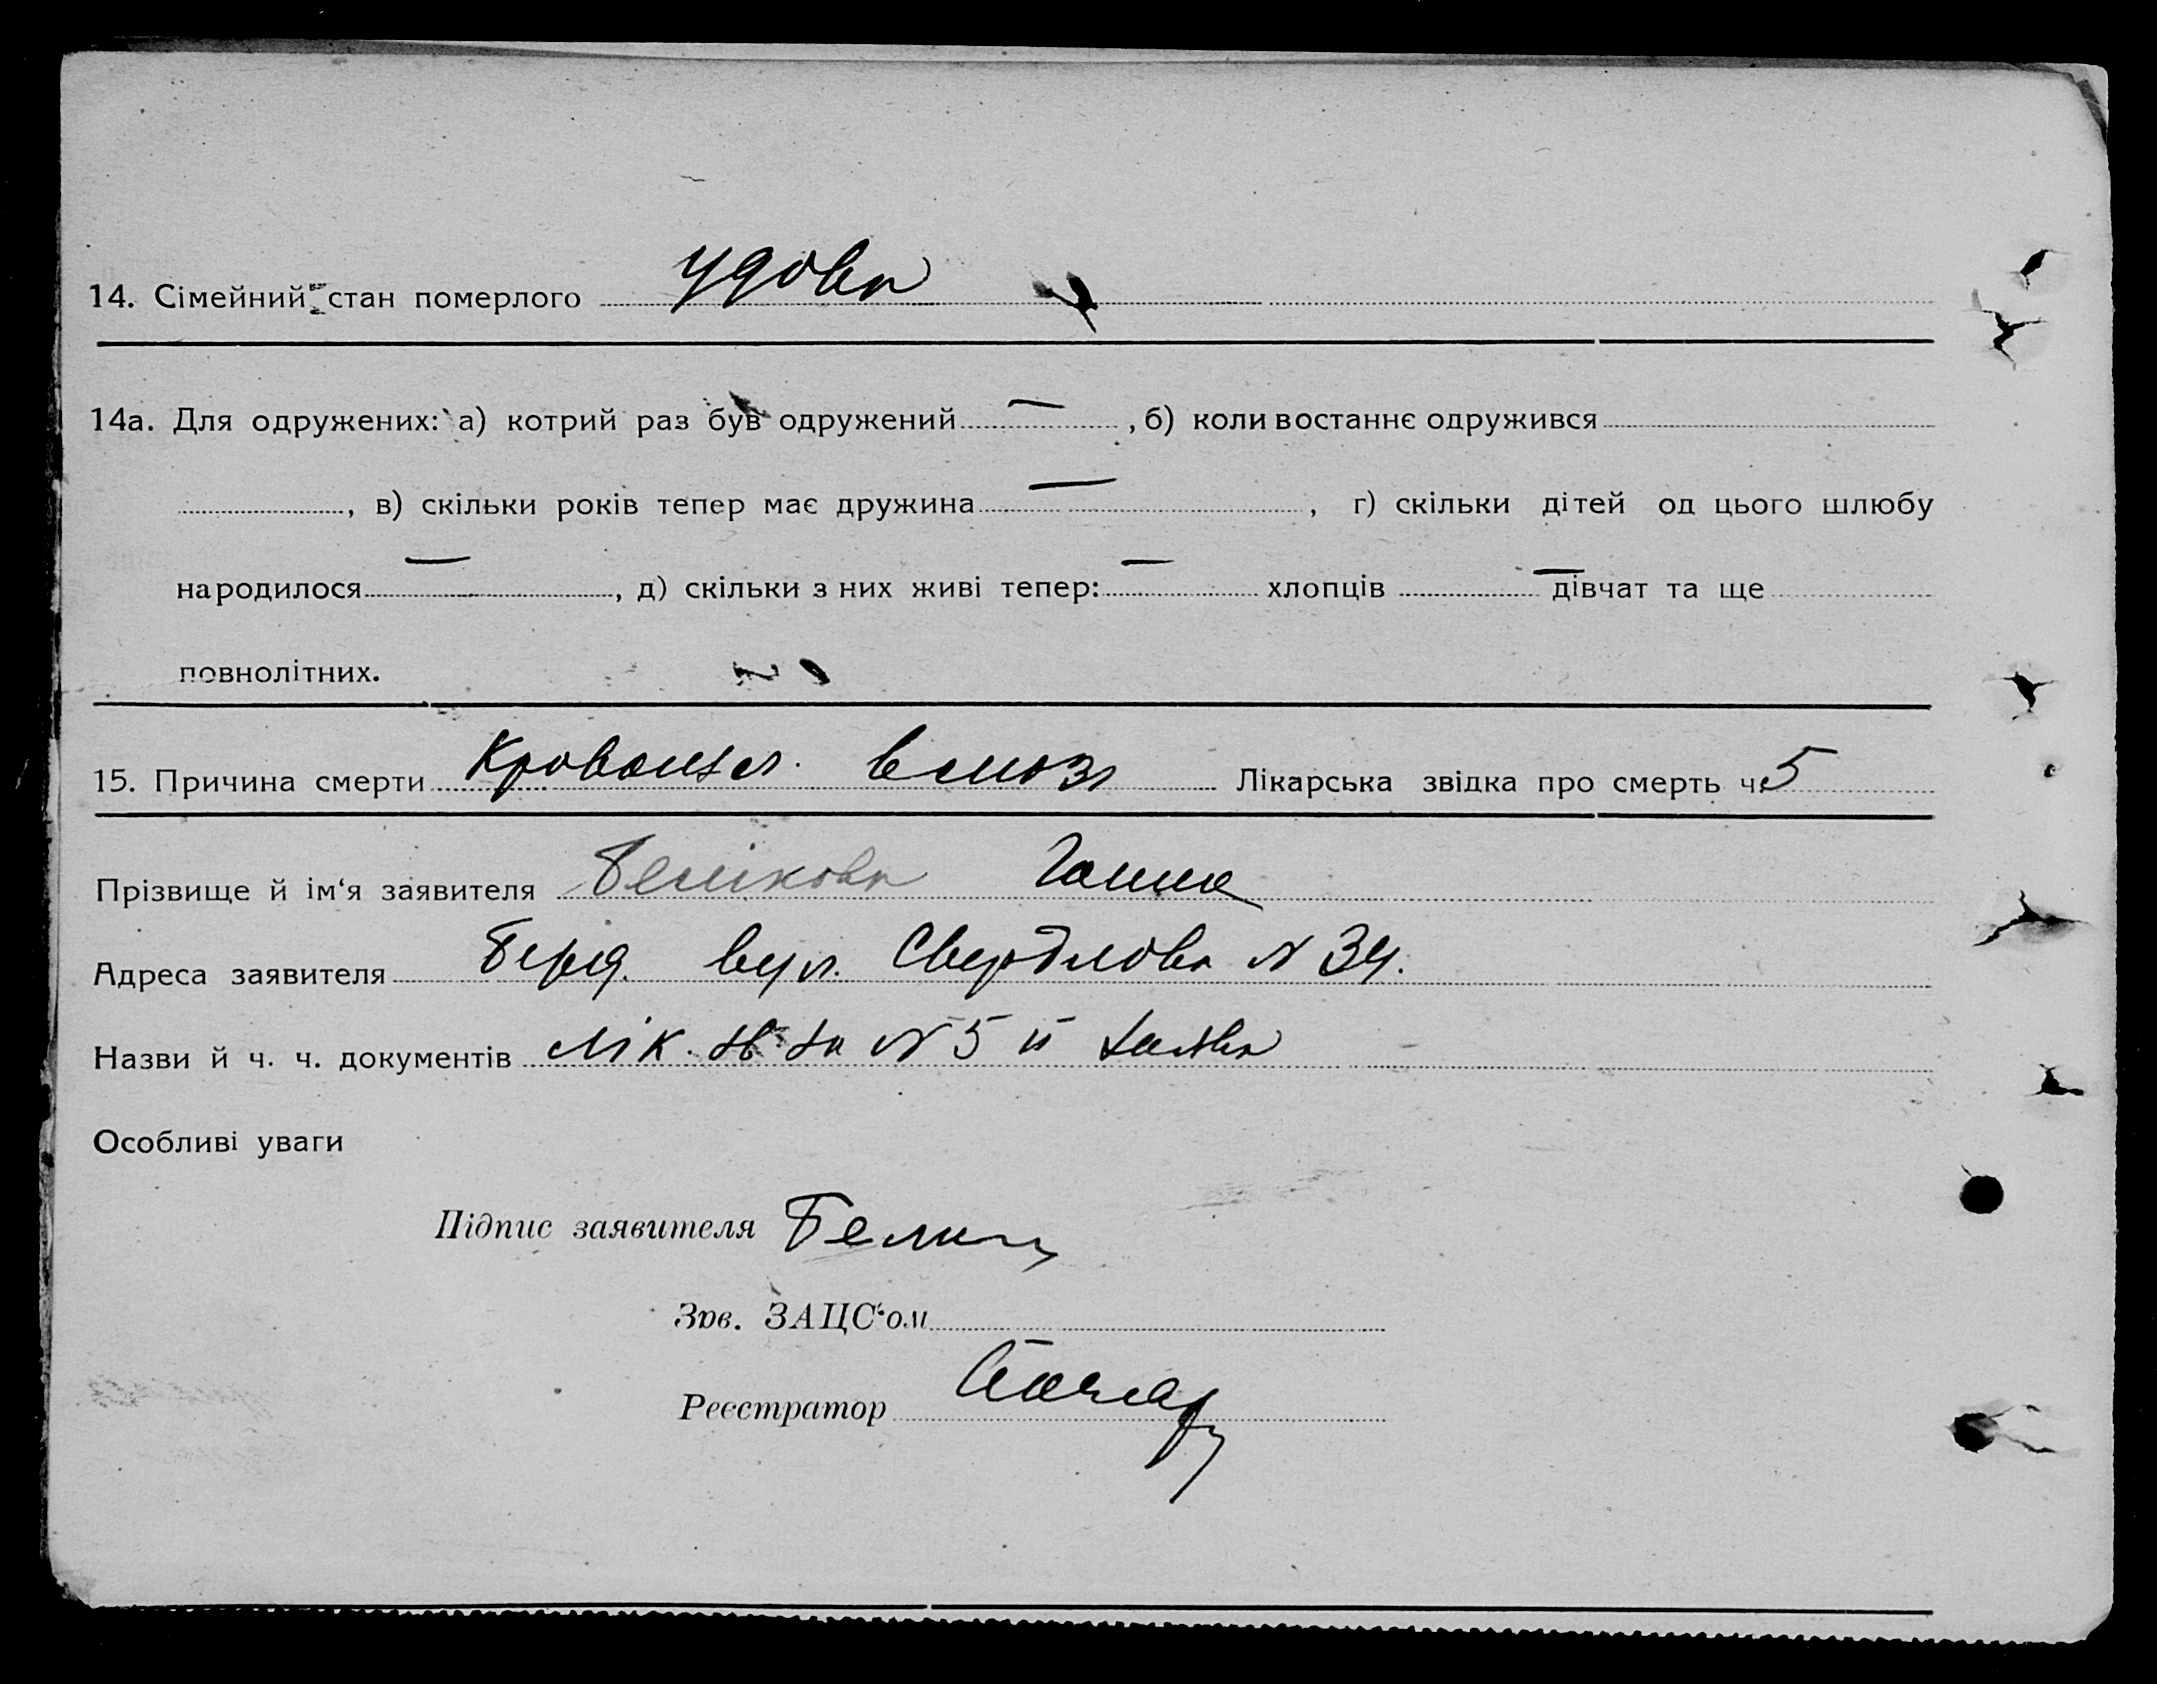 14. Сімейний стан померлого удова
14а. Для одружених: а) котрий раз був одружений — , б) коли востаннє одружився
, в) скільки років тепер має дружина — , г) скільки дітей од цього шлюбу
народилося — , д) скільки з них живі тепер: — хлопців — дівчат та ще
повнолітних.
15. Причина смерти Кровоизл. в мозг Лікарська звідка про смерть ч. 5
Прізвище й ім‘я заявителя Ганна
Адреса заявителя Берд. вул. Свердлова № 34.
Назви й ч. ч. документів Лік. № 5 й заява
Особливі уваги
Підпис заявителя
Зав. ЗАЦС‘ом
Реєстратор